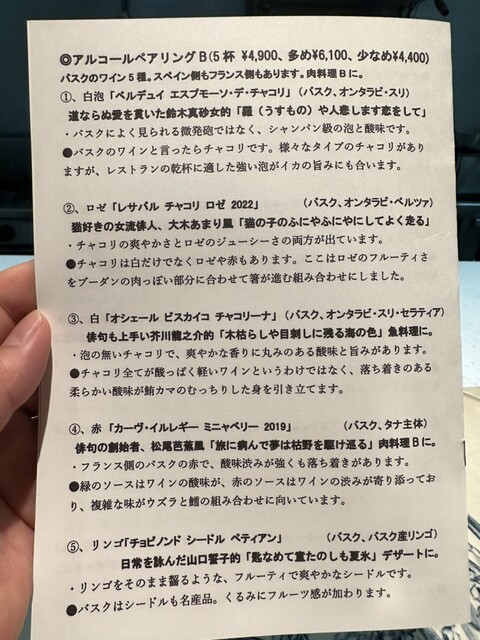 ◎アルコールペアリングB(5杯 ¥4,900、多め¥6,100、少なめ¥4,400)
バスクのワイン5種。スペイン側もフランス側もあります。肉料理Bに。
①、白泡「ベルデュイ エスプモーソ・デ・チャコリ」(バスク、オンタラビ・スリ)
道ならぬ愛を貫いた鈴木真砂女的「羅(うすもの)や人悲します恋をして」
・バスクによく見られる微発砲ではなく、シャンパン級の泡と酸味です。
●バスクのワインと言ったらチャコリです。様々なタイプのチャコリがあり
ますが、レストランの乾杯に適した強い泡がイカの旨みにも合います。
②、ロゼ「レサバル チャコリ ロゼ 2022」 (バスク、オンタラビ・ベルツァ)
猫好きの女流俳人、大木あまり風「猫の子のふにやふにやにしてよく走る」
・チャコリの爽やかさとロゼのジューシーさの両方が出ています。
●チャコリは白だけでなくロゼや赤もあります。ここはロゼのフルーティさ
をブーダンの肉っぽい部分に合わせて箸が進む組み合わせにしました。
③、白「オシェール ビスカイコ チャコリーナ」(バスク、オンタラビ・スリ・セラティア)
俳句も上手い芥川龍之介的「木枯らしや目刺しに残る海の色」魚料理に。
・泡の無いチャコリで、爽やかな香りに丸みのある酸味と旨みがあります。
●チャコリ全てが酸っぱく軽いワインというわけではなく、落ち着きのある
柔らかい酸味が鮪カマのむっちりした身を引き立てます。
④、赤「カーヴ・イルレギー ミニャベリー 2019」 (バスク、タナ主体)
俳句の創始者、松尾芭蕉風「旅に病んで夢は枯野を駆け巡る」肉料理Bに。
・フランス側のバスクの赤で、酸味渋みが強くも落ち着きがあります。
●緑のソースはワインの酸味が、赤のソースはワインの渋みが寄り添ってお
り、複雑な味がウズラと鱈の組み合わせに向いています。
⑤、リンゴ「チョピノンド シードル ペティアン」 (バスク、バスク産リンゴ)
日常を詠んだ山口誓子的「匙なめて童たのしも夏氷」デザートに。
・リンゴをそのまま齧るような、フルーティで爽やかなシードルです。
●バスクはシードルも名産品。くるみにフルーツ感が加わります。